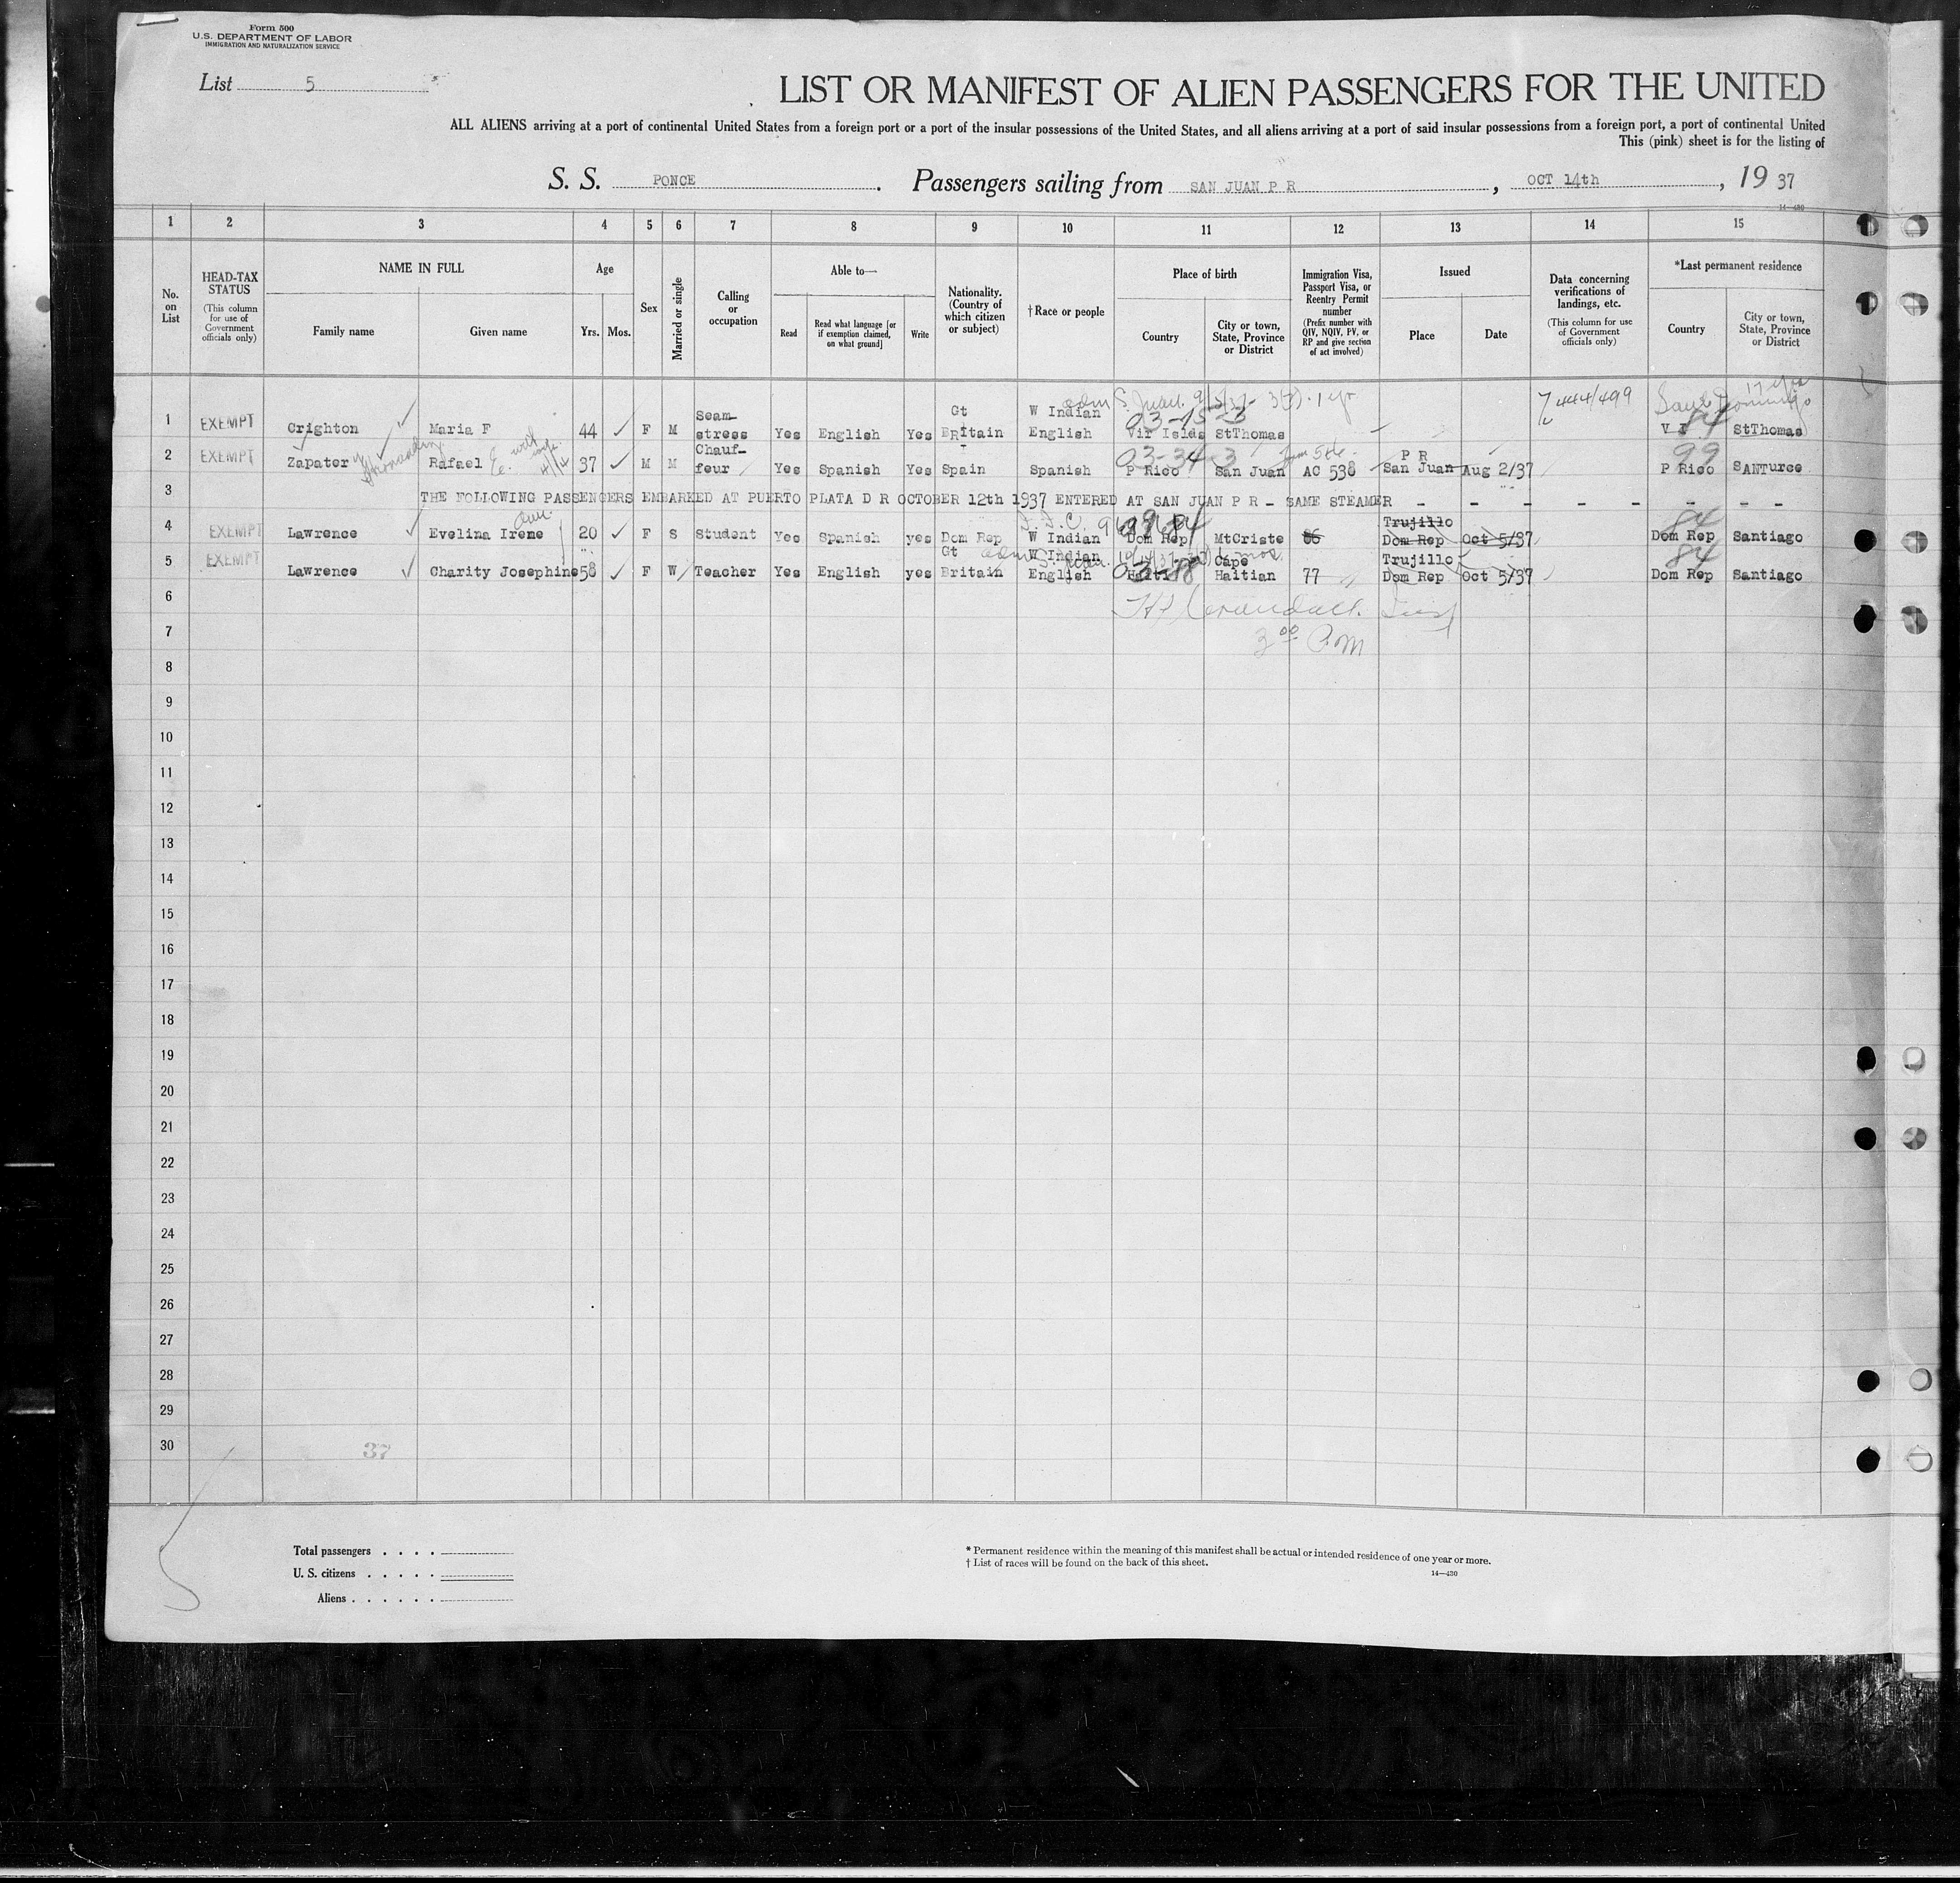 Form 500
U.S. DEPARTMENT OF LABOR
IMMIGRATION AND NATURALIZATION SERVICE
List 5
LIST OR MANIFEST OF ALIEN PASSENGERS FOR THE UNITED
ALL ALIENS arriving at a port of continental United States from a foreign port or a port of the insular possessions of the United States, and all aliens arriving at a port of said insular possessions from a foreign port, a port of continental United
This (pink) sheet is for the listing of
S. S. PONCE. Passengers sailing from SAN JUAN P R, OCT 14th, 19 37
14—430
1 2 3 4 5 6 7 8 9 10 11 12 13 14 15
No. on List
HEAD-TAX STATUS (This column for use of Government officials only)
NAME IN FULL
Family name Given name
Age
Yrs. Mos.
Sex
Married or single
Calling or occupation
Able to—
Read Read what language [or if exemption claimed, on what ground] Write
Nationality. (Country of which citizen or subject)
†Race or people
Place of birth
Country City or town, State, Province or District
Immigration Visa, Passport Visa, or Reentry Permit number (Prefix number with QIV, NQIV, PV, or RP and give section of act involved)
Issued
Place Date
Data concerning verifications of landings, etc. (This column for use of Government officials only)
*Last permanent residence
Country City or town, State, Province or District
adm S. Juan 1 yr 7 444/499 Santo Domingo 17 yrs
1 EXEMPT Crighton Maria F 44 F M Seam-stress Yes English Yes Gt BRitain W Indian English 03-15 23 Vir Islds StThomas V I 84 StThomas
2 EXEMPT Zapater Rafael E 37 M M Chauf-feur Yes Spanish Yes Spain Spanish 03-34-3 P Rico San Juan AC 538 P R San Juan Aug 2/37 99 P Rico SANTurce
3 THE FOLLOWING PASSENGERS EMBARKED AT PUERTO PLATA D R OCTOBER 12th 1937 ENTERED AT SAN JUAN P R - SAME STEAMER - - - - - - - -
4 EXEMPT Lawrence Evelina Irene 20 F S Student Yes Spanish yes Dom Rep W Indian Dom Rep MtCriste 86 Trujillo Dom Rep Oct 5/37 84 Dom Rep Santiago
5 EXEMPT Lawrence Charity Josephine 58 F W Teacher Yes English yes Gt Britain W Indian English Haiti Cape Haitian 77 Trujillo Dom Rep Oct 5/37 84 Dom Rep Santiago
6
7 3 00 P.M
8
9
10
11
12
13
14
15
16
17
18
19
20
21
22
23
24
25
26
27
28
29
30
37
Total passengers . . . .
U. S. citizens . . . . .
Aliens . . . . . .
* Permanent residence within the meaning of this manifest shall be actual or intended residence of one year or more.
† List of races will be found on the back of this sheet.
14—430